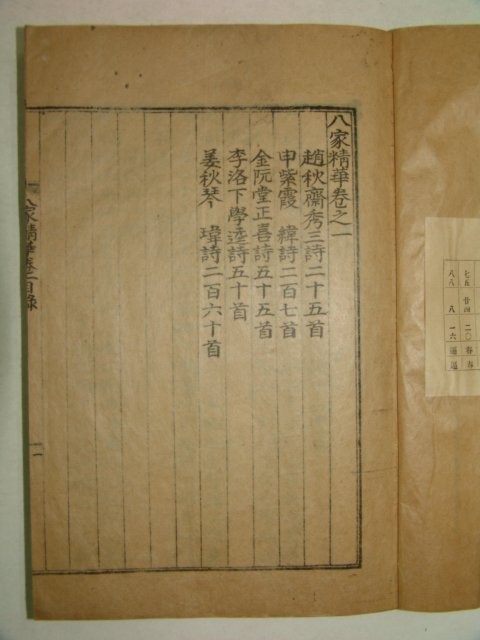 八家精華卷之一
趙秋齋秀三詩二十五首
申紫霞 緯詩二百七首
金阮堂正喜詩五十五首
李洛下學逵詩五十首
姜秋琴 瑋詩二百六十首
八家精華卷一目錄
一
七五 廿四 二〇
八八 八 一六